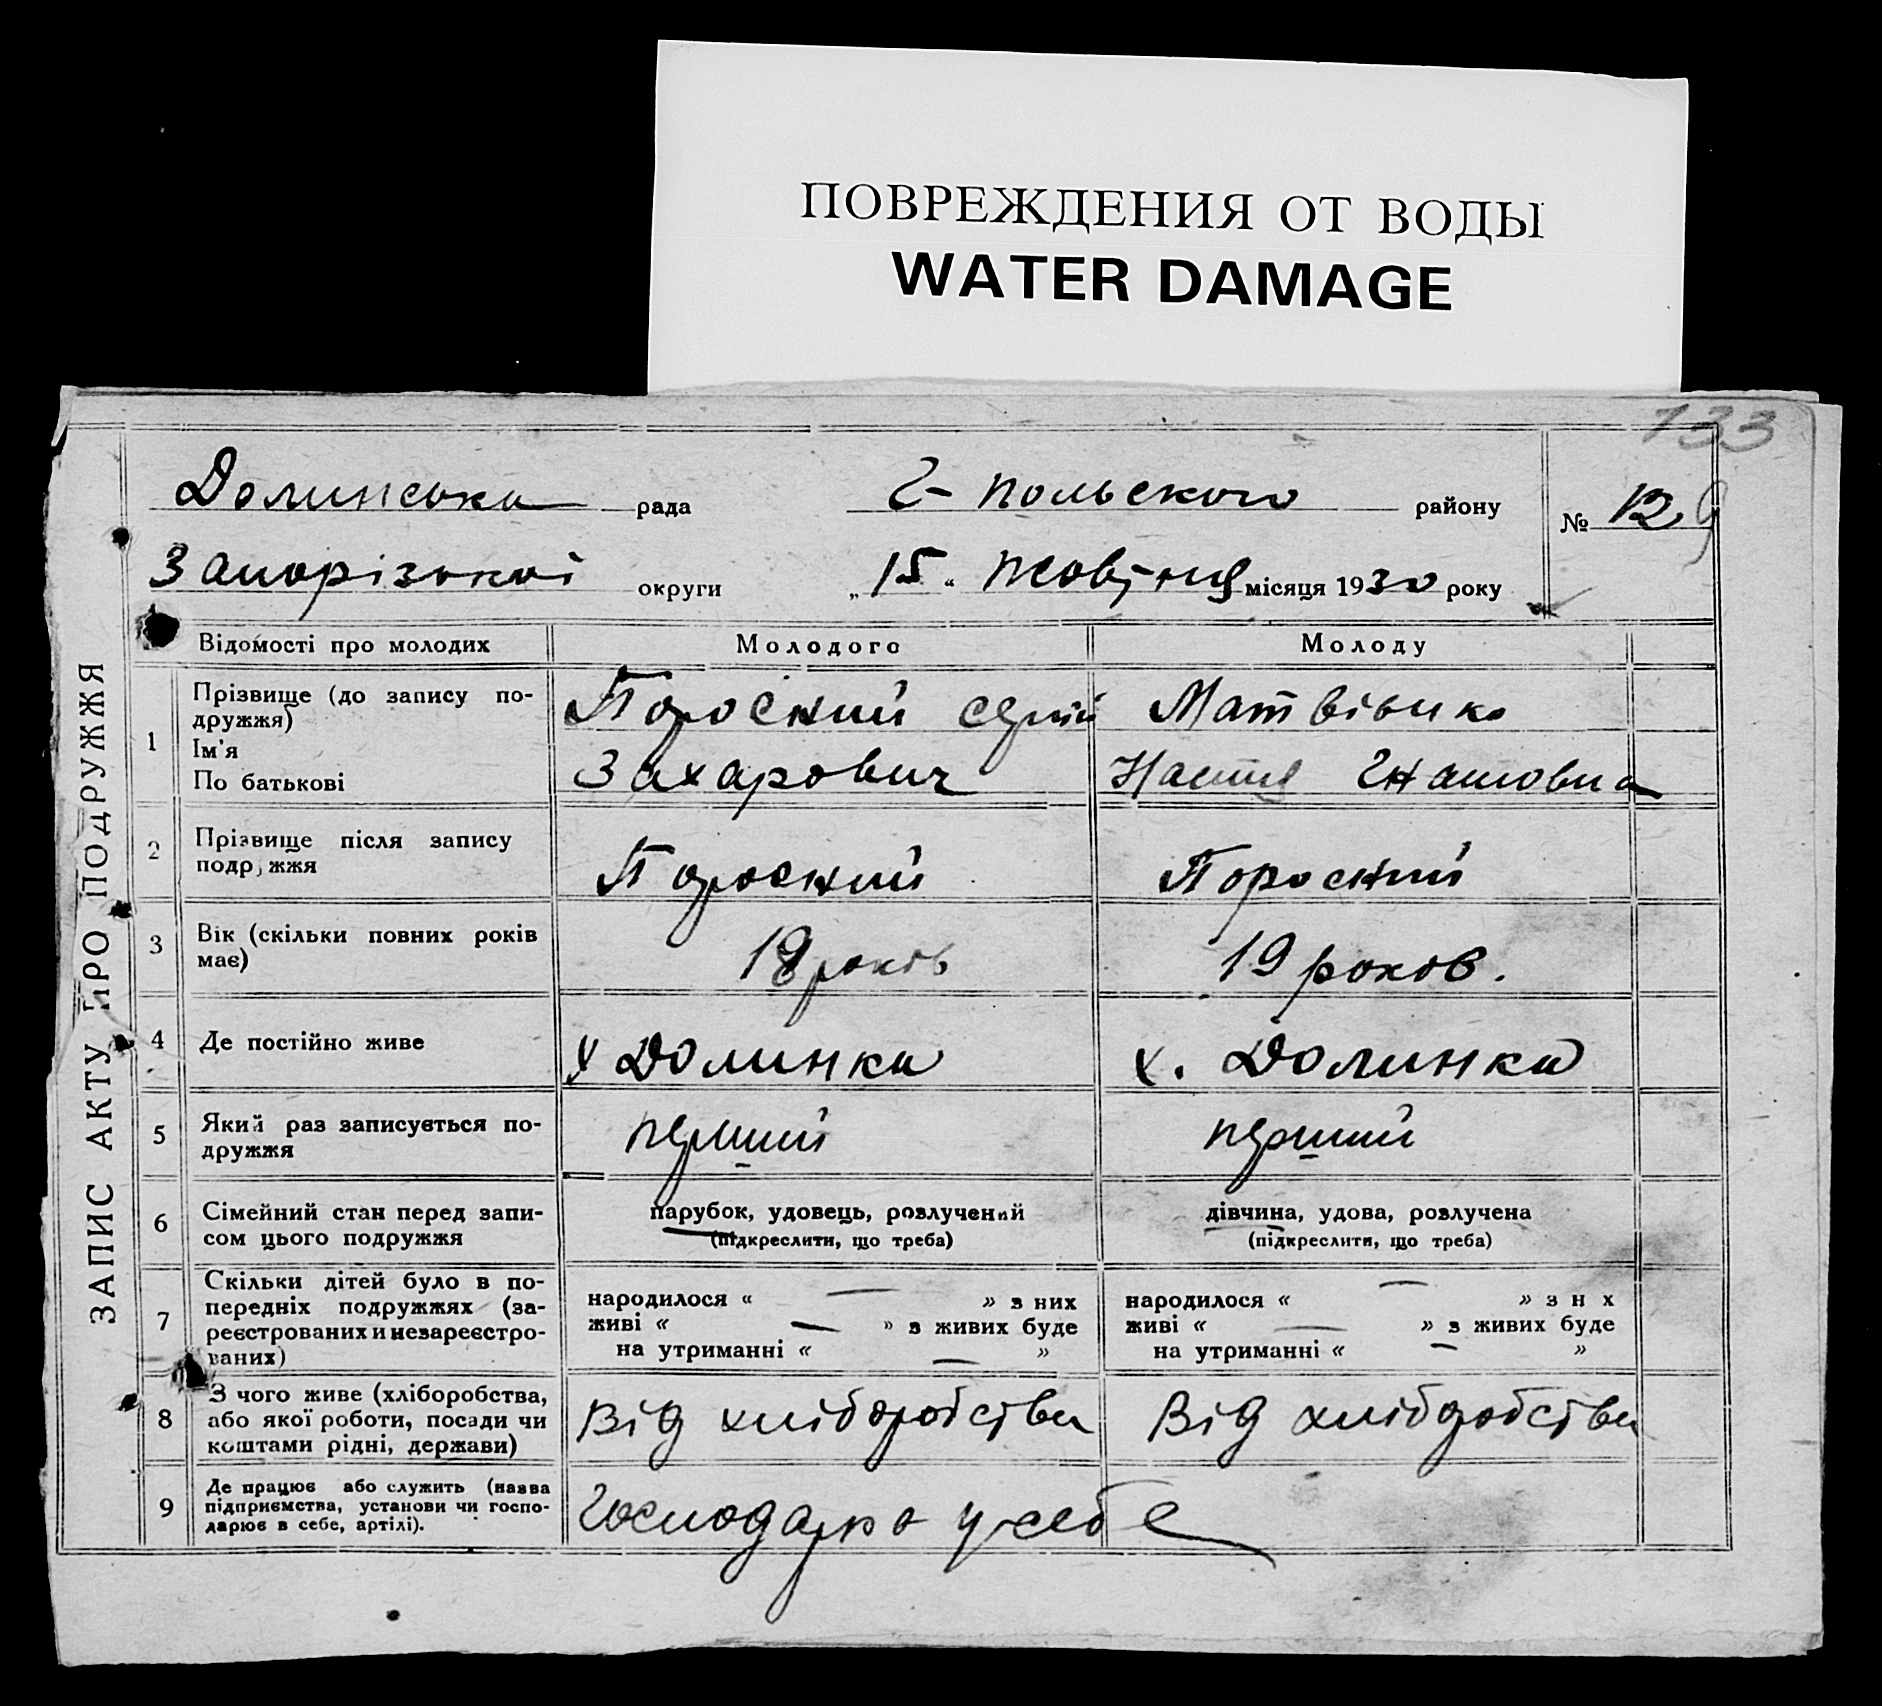 ПОВРЕЖДЕНИЯ ОТ ВОДЫ
WATER DAMAGE
133
Долинська рада Г-польського району № 12
Запорізької округи „15“ Жовтня місяця 1930 року
ЗАПИС АКТУ ПРО ПОДРУЖЖЯ
Відомості про молодих Молодого Молоду
1 Прізвище (до запису по-
дружжя)
Ім'я
По батькові
Пороский Сергій
Захарович
Матвієнко
Настя Гнатовна
2 Прізвище після запису
подружжя
Пороский Пороский
3 Вік (скільки повних років
має)
років 19 років.
4 Де постійно живе х Долинка х. Долинка
5 Який раз записується по-
дружжя
перший перший
6 Сімейний стан перед запи-
сом цього подружжя
парубок, удовець, розлучений
(підкреслити, що треба)
дівчина, удова, розлучена
(підкреслити, що треба)
7 Скільки дітей було в по-
передніх подружжях (за-
реєстрованих и незареєстро-
ваних)
народилося « — » з них
живі « — » з живих буде
на утриманні « — »
народилося « — » з н х
живі « — » з живих буде
на утриманні « — »
8 З чого живе (хліборобства,
або якої роботи, посади чи
коштами рідні, держави)
Від хліборобства Від хліборобства
9 Де працює або служить (назва
підприємства, установи чи госпо-
дарює в себе, артілі).
Господарює у себе